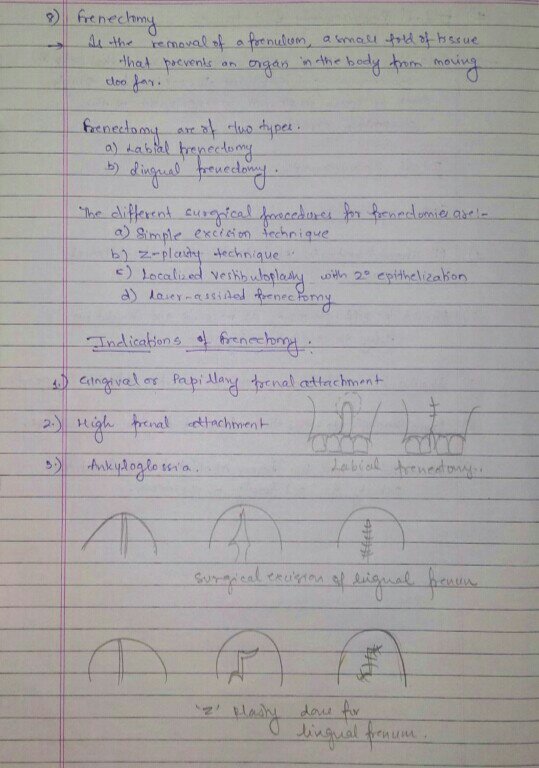 8) Frenectomy
→ Is the removal of a frenulum, a small fold of tissue
that prevents an organ in the body from moving
too far.
Frenectomy are of two types.
a) Labial frenectomy
b) Lingual frenectomy.
The different surgical procedures for frenectomies are:-
a) Simple excision technique
b) Z-plasty technique
c) Localized vestibuloplasty with 2° epithelization
d) Laser-assisted frenectomy
Indications of frenectomy.
1.) Gingival or Papillary frenal attachment
2.) High frenal attachment
3.) Ankyloglossia.
Labial frenectomy.
Surgical excision of lingual frenum
'Z' plasty done for
lingual frenum.